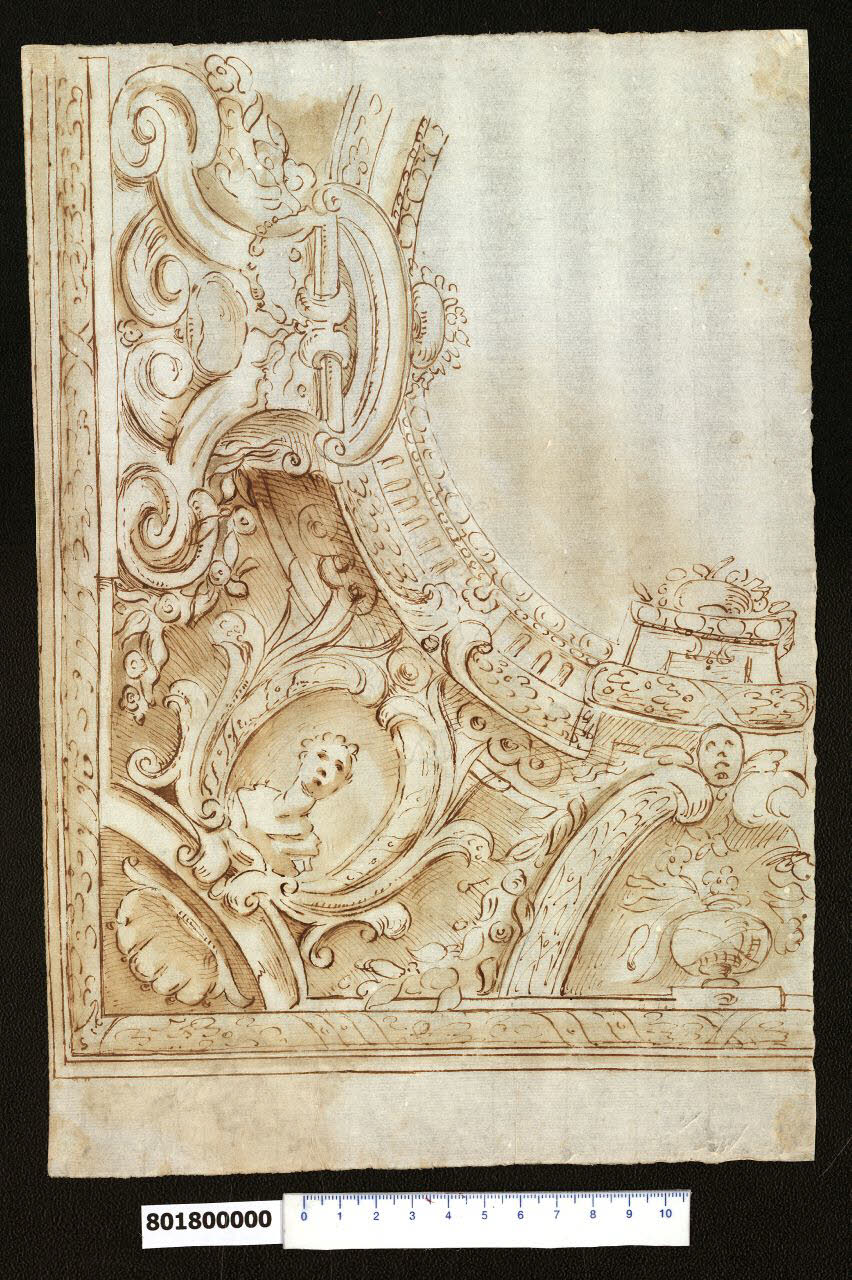 801800000
0 1 2 3 4 5 6 7 8 9 10